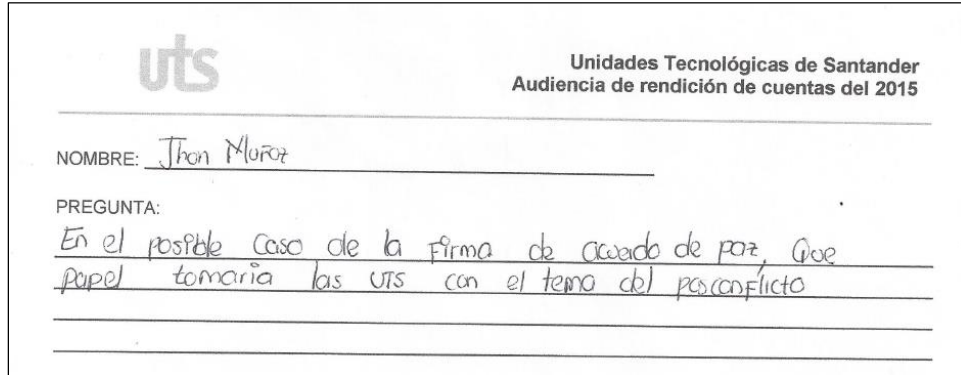 uts
Unidades Tecnológicas de Santander
Audiencia de rendición de cuentas del 2015
NOMBRE: Jhon Muñoz
PREGUNTA:
En el posible caso de la firma de acuerdo de paz, Que
papel tomaria las UTS con el tema del posconflicto